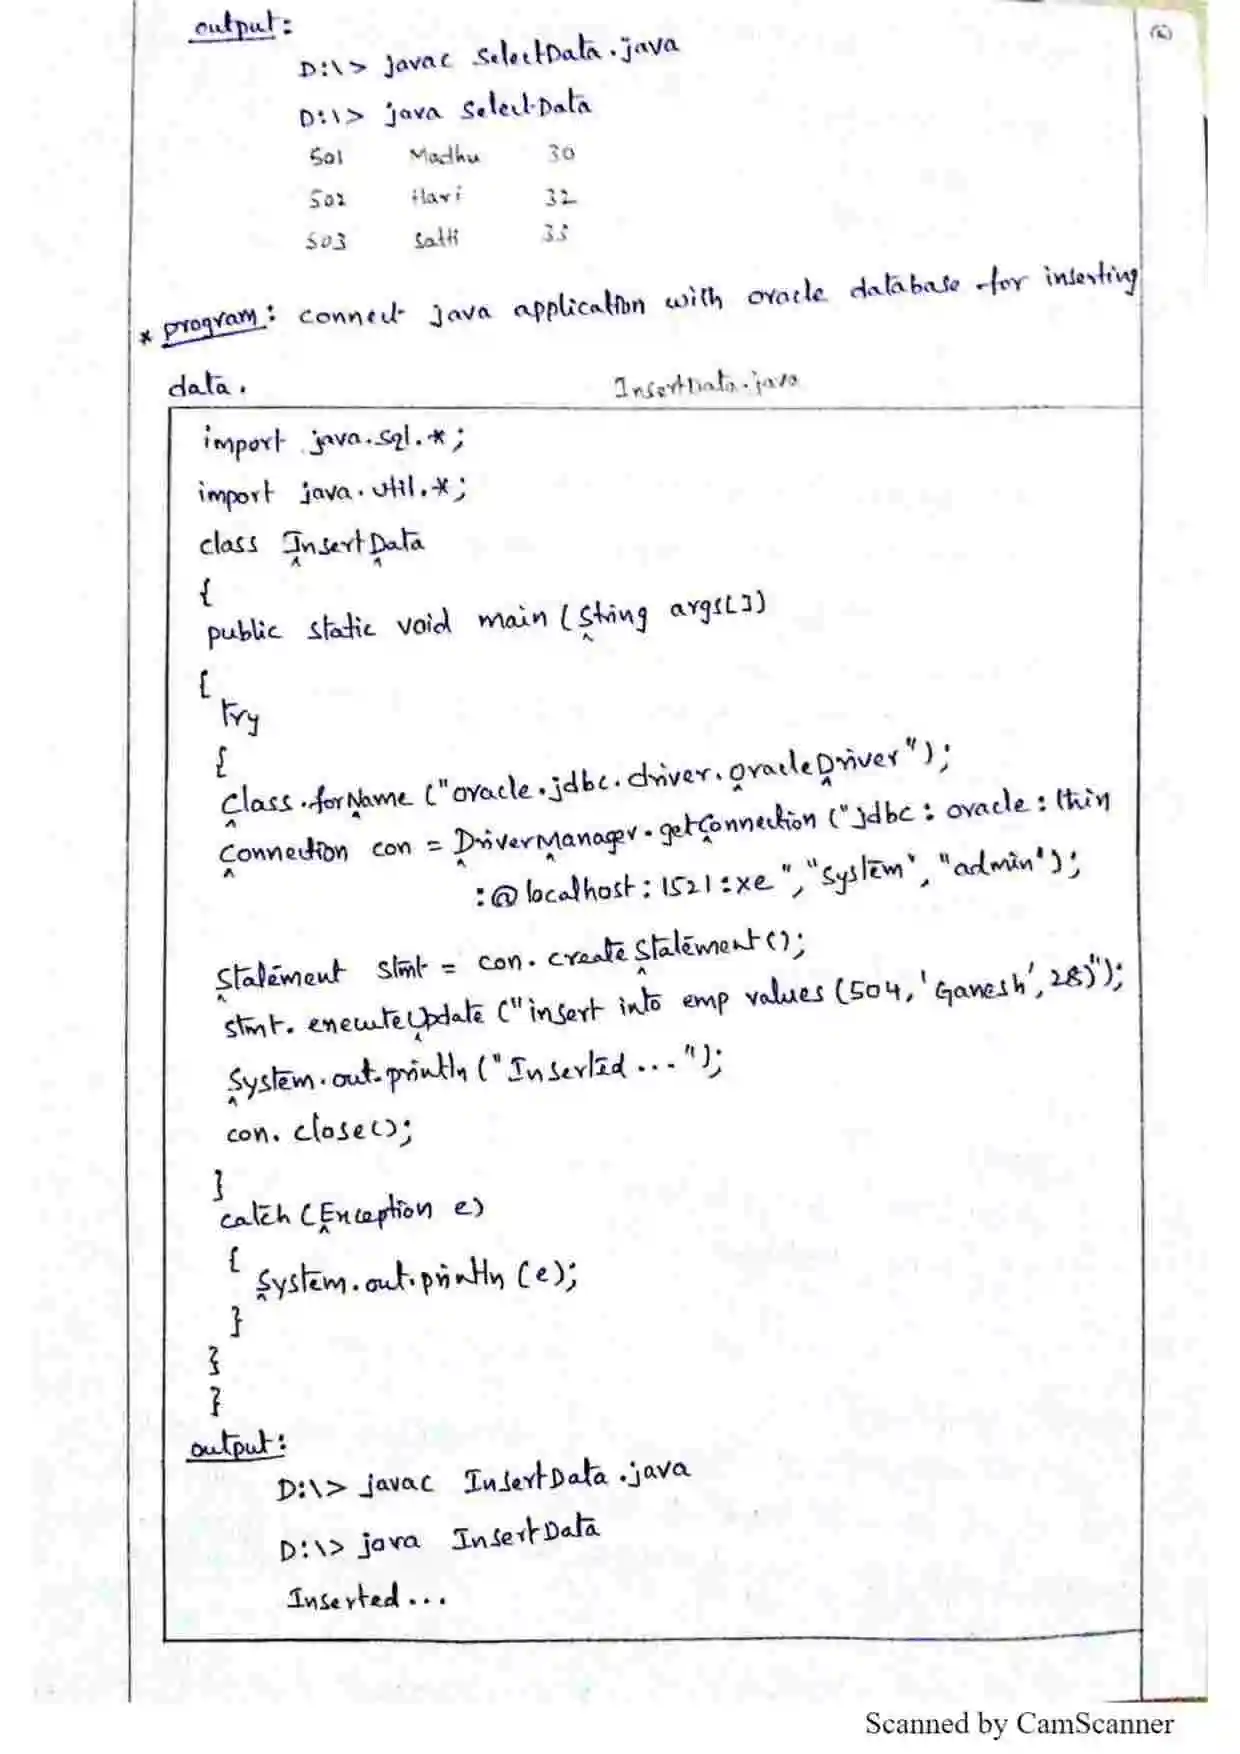 output:
D:\> javac SelectData.java
D:\> java SelectData
501 Madhu 30
502 Hari 32
503 Satti 33
* program: connect java application with oracle database for inserting
data. InsertData.java
import java.sql.*;
import java.util.*;
class InsertData
{
public static void main (String args[])
{
try
{
Class.forName ("oracle.jdbc.driver.OracleDriver");
Connection con = DriverManager.getConnection ("jdbc:oracle:thin
:@localhost:1521:xe", "system", "admin");
Statement stmt = con.createStatement();
stmt.executeUpdate ("insert into emp values (504, 'Ganesh', 28)");
System.out.println ("Inserted ...");
con.close();
}
catch (Exception e)
{
System.out.println (e);
}
}
}
output:
D:\> javac InsertData.java
D:\> java InsertData
Inserted...
Scanned by CamScanner